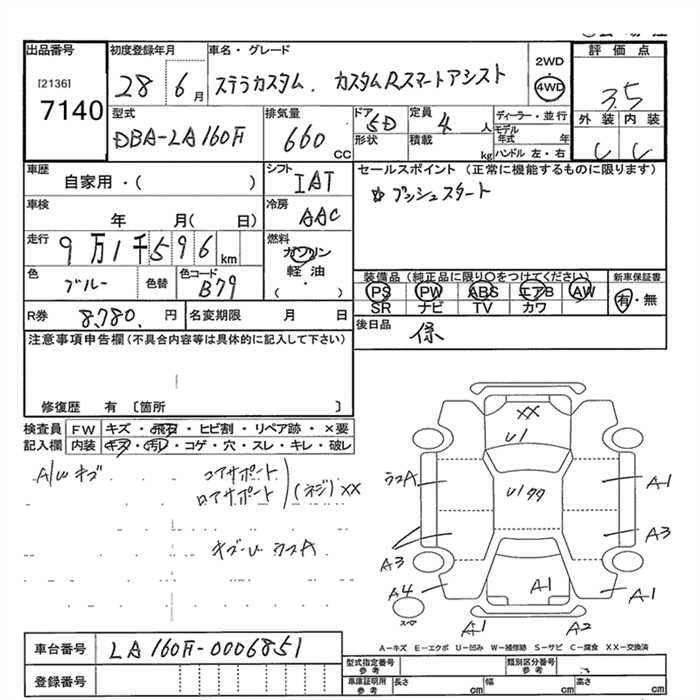 出品番号 初度登録年月 車名・グレード 2WD 評価点
[2136] 7140 28 6月 ステラカスタム. カスタムRスマートアシスト 4WD 3.5
型式 排気量 ドア 定員 ディーラー・並行 外装 内装
DBA-LA160F 660 CC 5D 形状 4人 積載 kg モデル年式 年 ハンドル 左・右 C C
車歴 シフト セールスポイント (正常に機能するものに限ります)
自家用・( ) IAT プッシュスタート
車検 冷房
年 月( 日) AAC
走行 燃料
9万1千596km ガソリン
色 色替 色コード 軽油 装備品(純正品に限り○をつけてください) 新車保証書
ブルー B79 ・( ) PS PW ABS エアB AW 有・無
SR ナビ TV カワ
R券 8,780.円 名変期限 月 日 後日品 保
注意事項申告欄(不具合内容等は具体的に記入して下さい)
修復歴 有 〔箇所 〕
検査員 FW キズ・飛石・ヒビ割・リペア跡・×要
記入欄 内装 キズ・汚れ・コゲ・穴・スレ・キレ・破レ
A/W キズ コアサポート
ロアサポート (ネジ) XX
キズ・U ウスA
XX
U1
ウスA U1 A1
A3 A3
A4 A1 A1
スペア A1 A2
A-キズ E-エクボ U-凹み W-補修跡 S-サビ C-腐食 XX-交換済
車台番号 LA160F-0006851
型式指定番号 参考 類別区分番号 参考
登録番号
車庫証明用 参考 長さ cm 幅 cm 高さ cm